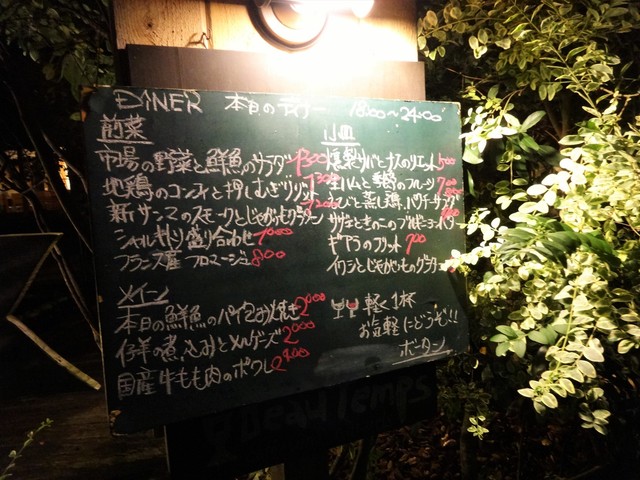 DINER 本日のディナー 18:00~24:00
前菜
市場の野菜と鮮魚のサラダ 1300
地鶏のコンフィと押しむぎリゾット
新サンマのスモークとじゃがいもグラタン 1200
シャルキュトリ盛り合わせ 1000
フランス産 フロマージュ 800
メイン
本日の鮮魚のパイ包み焼き 2000
仔羊の煮込みとメルゲーズ 2000
国産牛もも肉のポワレ 2400
小皿
燻製サバとナスのリエット 500
生ハムと季節のフルーツ 700
えびと蒸し鶏、パクチーサラダ
サザエときのこのブルギニョンバター
ギアラのフリット 700
イワシとじゃがいものグラタン
軽く1杯
お気軽にどうぞ!!
ボータン
Beau Temps